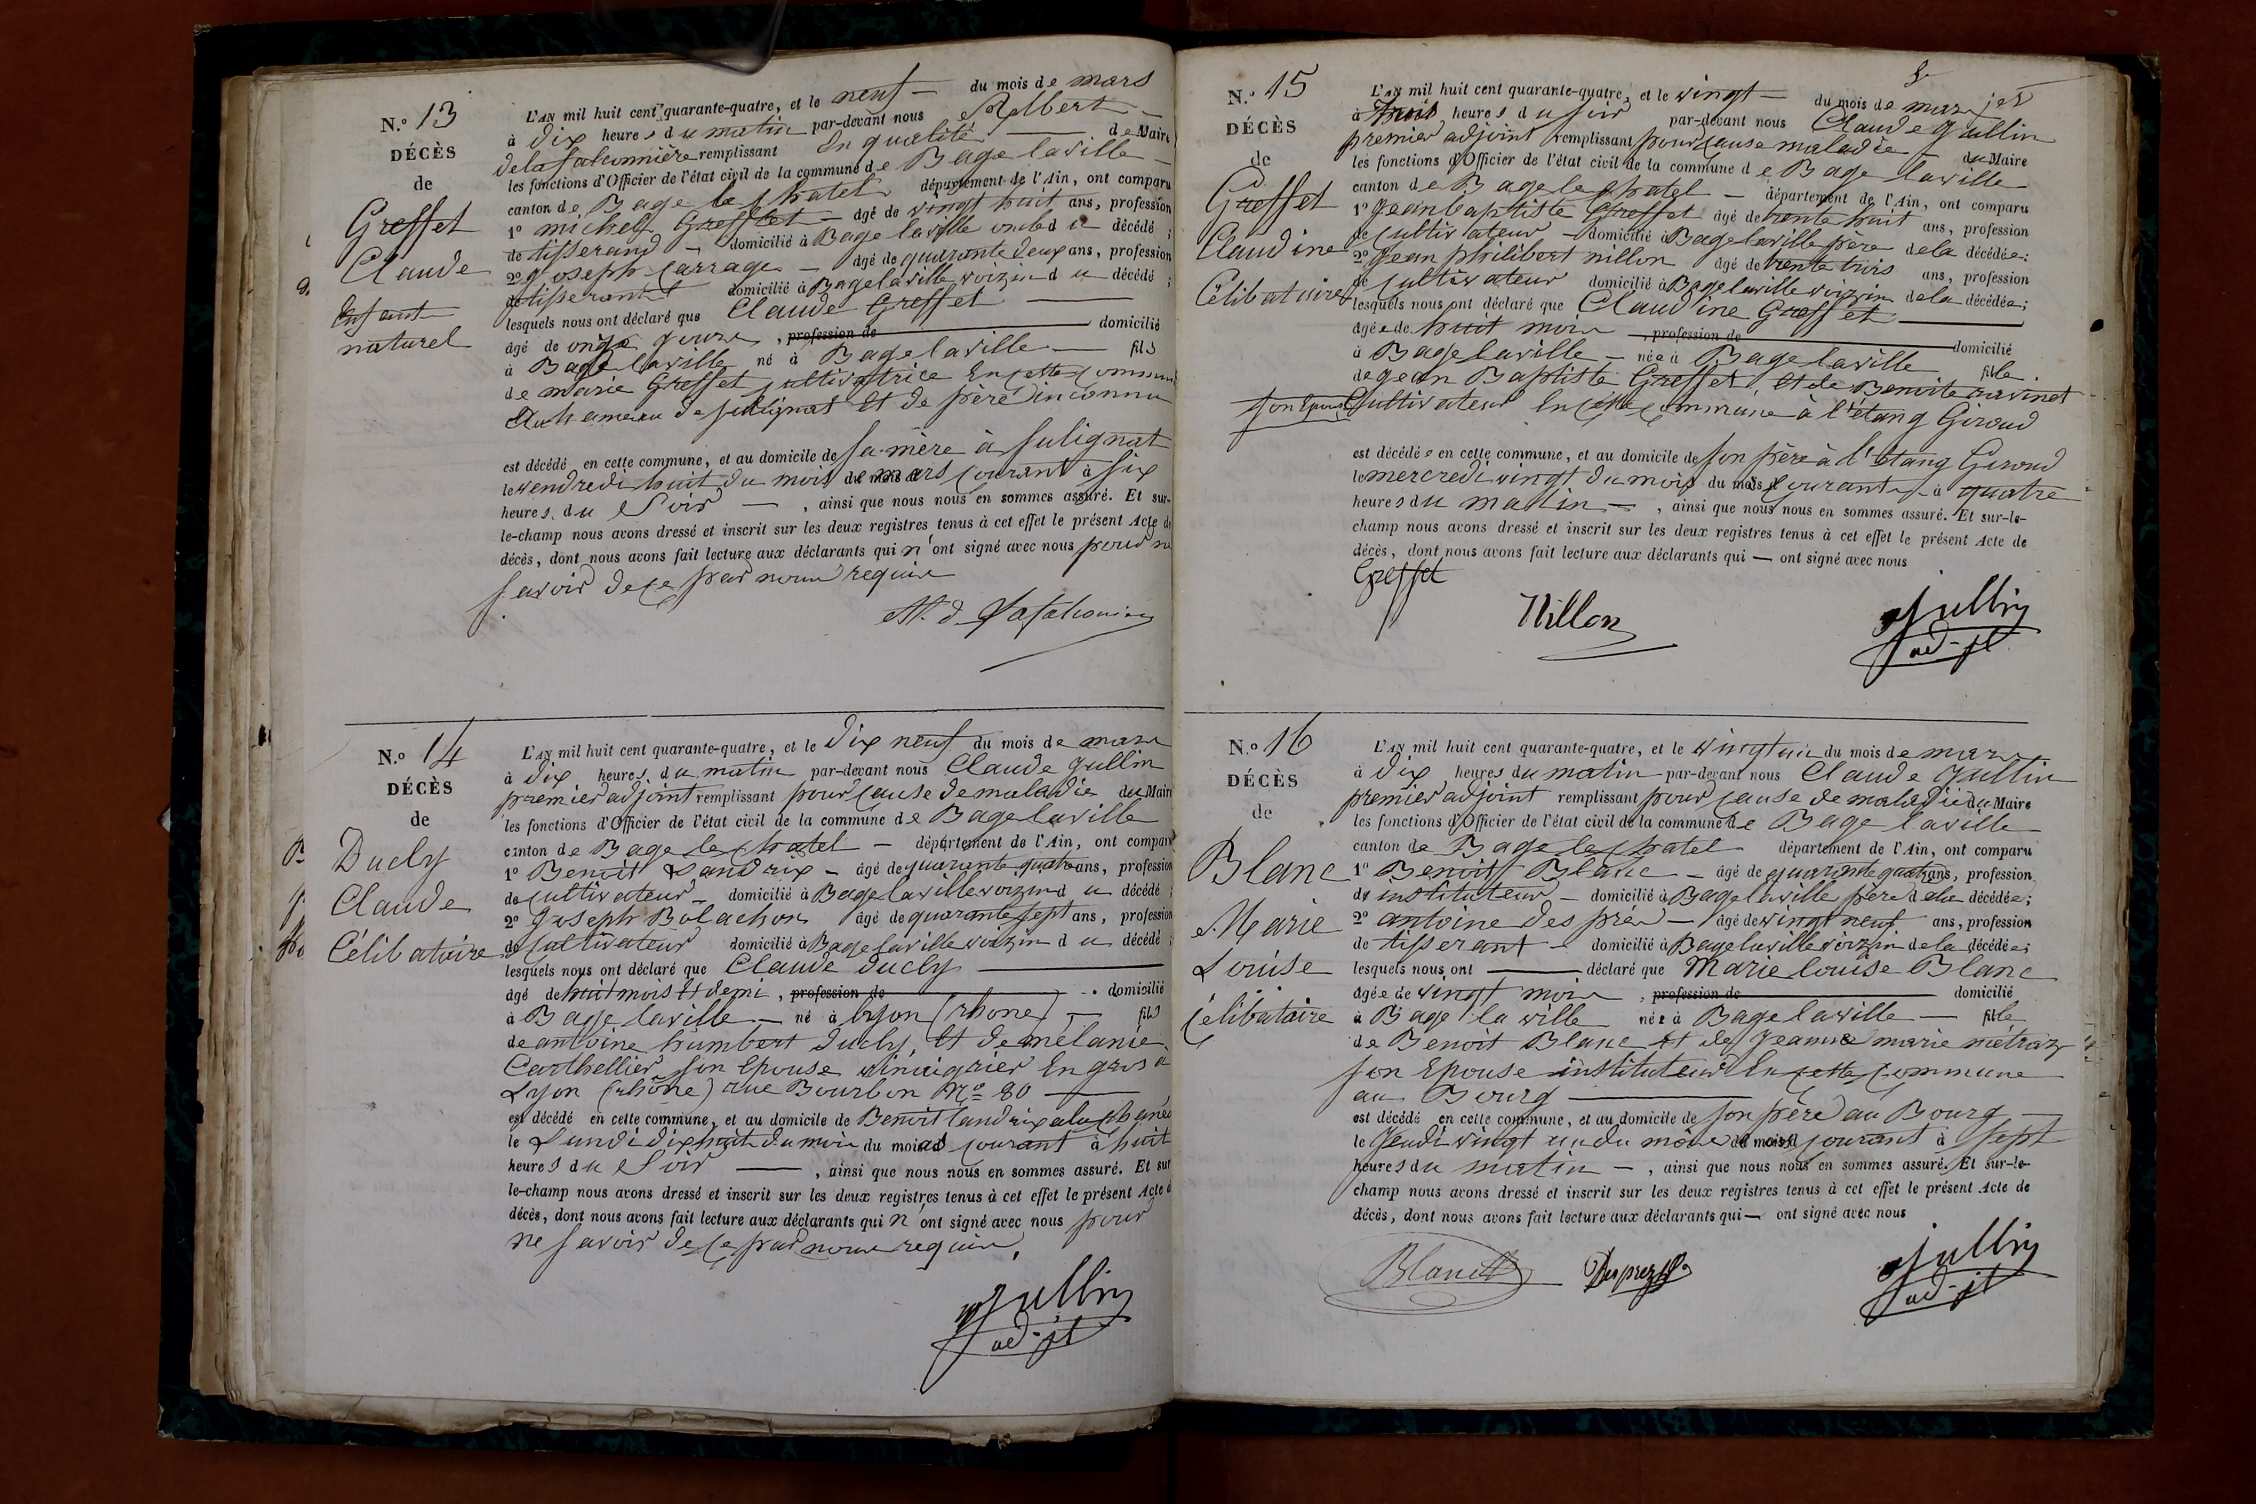 N.º 13
DÉCÈS
de
Greffet
Claude
Enfant
naturel
L'AN mil huit cent quarante-quatre, et le neuf du mois de mars
à dix heures du matin par-devant nous Albert
de la fahonnière remplissant En qualité de Maire
les fonctions d'Officier de l'état civil de la commune de Bage laville
canton de Bage le Chatel département de l'Ain, ont comparu
1º michel Greffet âgé de vingt huit ans, profession
de tisserand domicilié à Bage laville oncle du décédé ;
2º Joseph Carrage âgé de quarante deux ans, profession
de tisserant domicilié à Bagelaville voizin du décédé ;
lesquels nous ont déclaré que Claude Greffet
âgé de onze jours, profession de domicilié
à Bage laville né à Bage laville fils
de marie Greffet cultivatrice En cette commune
Au hameau de sulignat Et de père inconnu
est décédé en cette commune, et au domicile de sa mère à sulignat
le vendredi huit du mois du mois de mars courant à six
heures du Soir, ainsi que nous nous en sommes assuré. Et sur-
le-champ nous avons dressé et inscrit sur les deux registres tenus à cet effet le présent Acte de
décès, dont nous avons fait lecture aux déclarants qui n'ont signé avec nous pour ne
savoir de ce par nous requis
A. d. Lafahonnière
N.º 14
DÉCÈS
de
Ducly
Claude
Célibataire
L'AN mil huit cent quarante-quatre, et le dix neuf du mois de mars
à dix heures du matin par-devant nous Claude Jullin
premier adjoint remplissant pour cause de maladie du Maire
les fonctions d'Officier de l'état civil de la commune de Bage laville
canton de Bage le Chatel département de l'Ain, ont comparu
1º Benoit Landrix âgé de quarante quatre ans, profession
de cultivateur domicilié à Bage laville voizin du décédé ;
2º Joseph Bolachon âgé de quarante sept ans, profession
de cultivateur domicilié à Bage laville voizin du décédé ;
lesquels nous ont déclaré que Claude Ducly
âgé de huit mois Et demi, profession de domicilié
à Bage laville né à lyon (rhone) fils
de antoine humbert Ducly, Et de mélanie
Carthellier son Epouse vinaigrier En gros à
Lyon (rhône) rue Bourbon Nº 80
est décédé en cette commune, et au domicile de Benoit landrix
le Lundi dix huit du mois du mois courant à huit
heures du Soir, ainsi que nous nous en sommes assuré. Et sur
le-champ nous avons dressé et inscrit sur les deux registres tenus à cet effet le présent Acte d
décès, dont nous avons fait lecture aux déclarants qui n'ont signé avec nous pour
ne savoir de ce par nous requis,
Jullin
ad-jt
N.º 15
DÉCÈS
de
Greffet
Claudine
Célibataire
L'AN mil huit cent quarante-quatre, et le vingt du mois de mars
à huit heures du soir par-devant nous Claude Jullin
premier adjoint remplissant pour cause maladie du Maire
les fonctions d'Officier de l'état civil de la commune de Bage laville
canton de Bage le Chatel département de l'Ain, ont comparu
1º Jean Baptiste Greffet âgé de trente huit ans, profession
de Cultivateur domicilié à Bage laville père de la décédée ;
2º Jean philibert nillon âgé de trente trois ans, profession
de Cultivateur domicilié à Bage laville voizin de la décédée ;
lesquels nous ont déclaré que Claudine Greffet
âgée de huit mois, profession de domicilié
à Bage laville née à Bage laville fille
de Jean Baptiste Greffet, Et de Benoite ravinet
son Epouse Cultivateur En cette commune à l'étang Giroud
est décédée en cette commune, et au domicile de son père à l'étang Giroud
le mercredi vingt du mois du mois courant à quatre
heures du matin, ainsi que nous nous en sommes assuré. Et sur-le-
champ nous avons dressé et inscrit sur les deux registres tenus à cet effet le présent Acte de
décès, dont nous avons fait lecture aux déclarants qui ont signé avec nous
Greffet
Nillon
Jullin
ad-jt
N.º 16
DÉCÈS
de
Blanc
Marie
Louise
célibataire
L'AN mil huit cent quarante-quatre, et le vingt un du mois de mars
à dix heures du matin par-devant nous Claude Jullin
premier adjoint remplissant pour cause de maladie du Maire
les fonctions d'Officier de l'état civil de la commune de Bage laville
canton de Bage le Chatel département de l'Ain, ont comparu
1º Benoit Blanc âgé de quarante quatre ans, profession
de instituteur domicilié à Bage laville père de la décédée ;
2º antoine des prés âgé de vingt neuf ans, profession
de tisserant domicilié à Bage laville voizin de la décédée ;
lesquels nous ont déclaré que Marie louise Blanc
âgée de vingt mois, profession de domicilié
à Bage la ville née à Bage laville fille
de Benoit Blanc Et de Jeanne marie métraz
son Epouse instituteur En cette commune
au Bourg
est décédée en cette commune, et au domicile de son père au Bourg
le Jeudi vingt un du mois du mois courant à sept
heures du matin, ainsi que nous nous en sommes assuré. Et sur-le-
champ nous avons dressé et inscrit sur les deux registres tenus à cet effet le présent Acte de
décès, dont nous avons fait lecture aux déclarants qui ont signé avec nous
Blanc
Desprez
Jullin
ad-jt